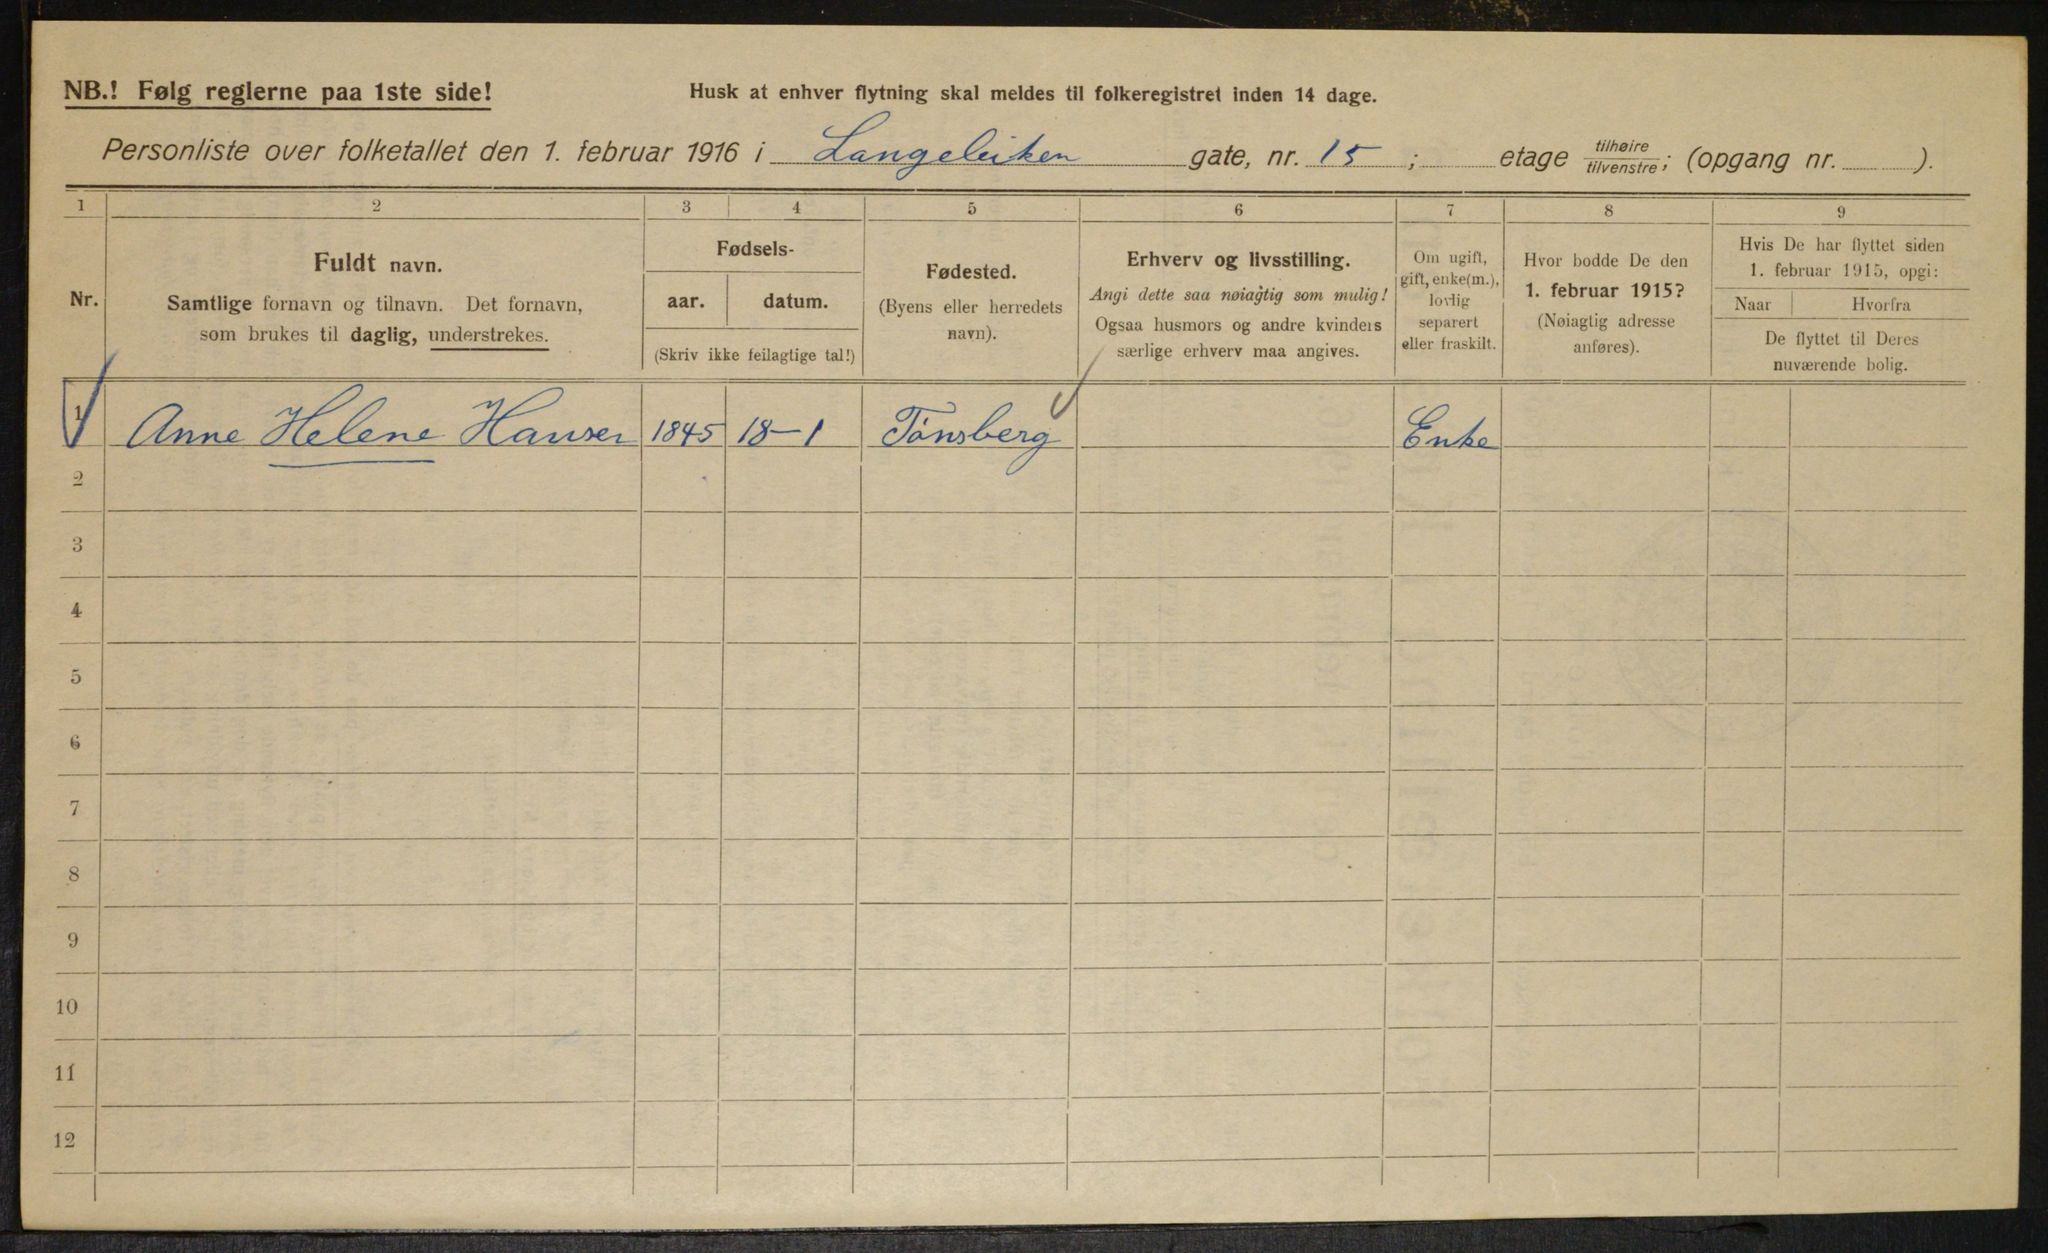 NB.! Følg reglerne paa 1ste side!
Husk at enhver flytning skal meldes til folkeregistret inden 14 dage.
Personliste over folketallet den 1. februar 1916 i Langeleiken gate, nr. 15 ; etage tilhøire/tilvenstre; (opgang nr. ).
1 2 3 4 5 6 7 8 9
Nr.
Fuldt navn.
Samtlige fornavn og tilnavn. Det fornavn,
som brukes til daglig, understrekes.
Fødsels-
aar. datum.
(Skriv ikke feilagtige tal!)
Fødested.
(Byens eller herredets
navn).
Erhverv og livsstilling.
Angi dette saa nøiagtig som mulig!
Ogsaa husmors og andre kvinders
særlige erhverv maa angives.
Om ugift,
gift, enke(m.),
lovlig
separert
eller fraskilt.
Hvor bodde De den
1. februar 1915?
(Nøiagtig adresse
anføres).
Hvis De har flyttet siden
1. februar 1915, opgi:
Naar Hvorfra
De flyttet til Deres
nuværende bolig.
1 Anne Helene Hansen 1845 18-1 Tønsberg Enke
2
3
4
5
6
7
8
9
10
11
12